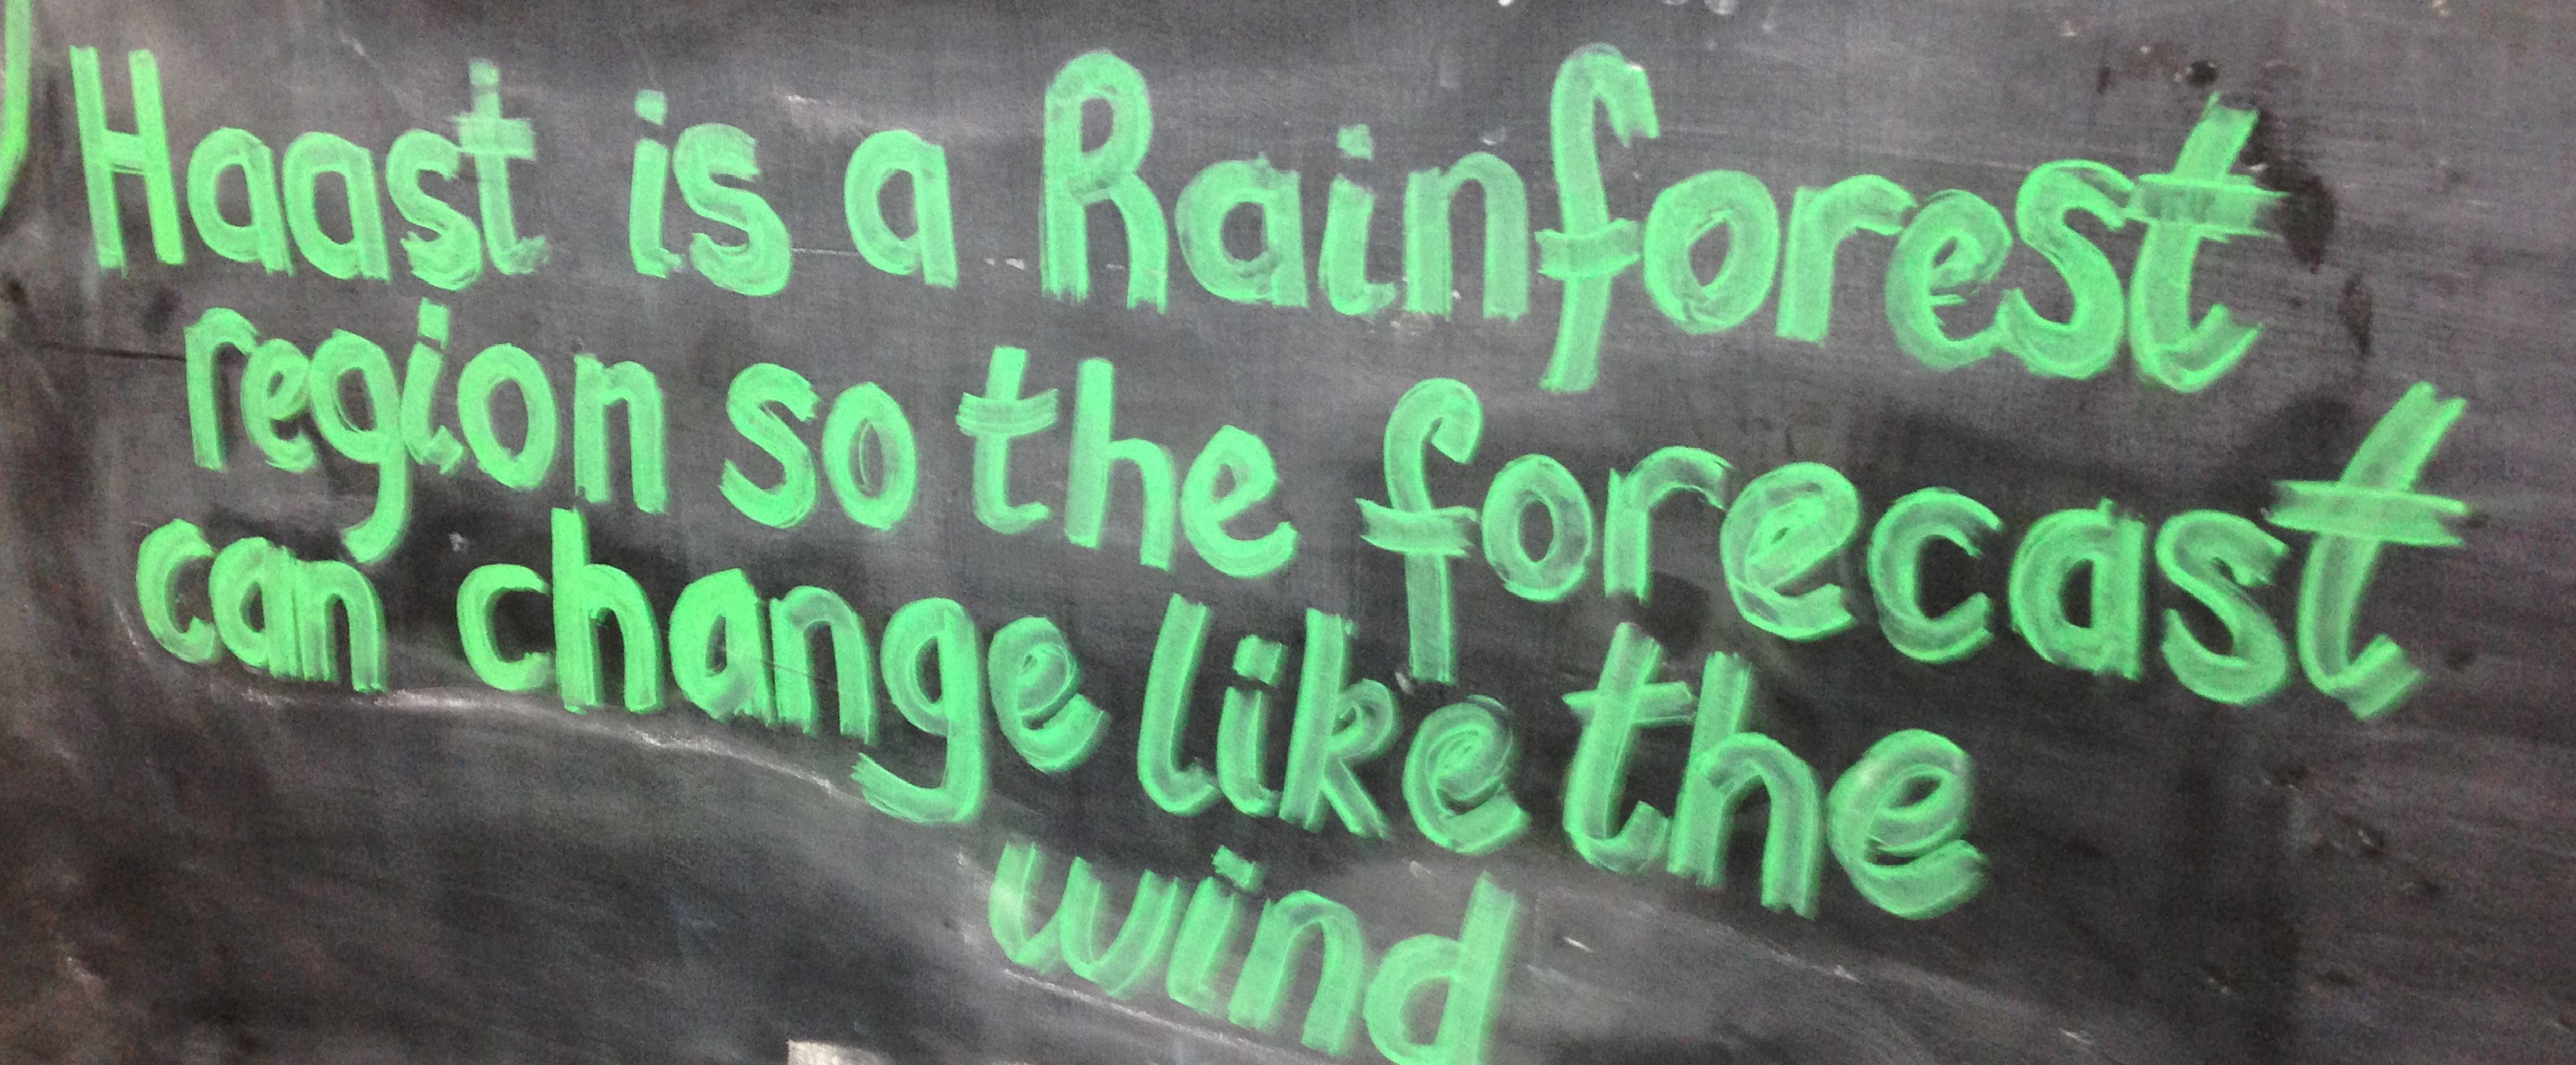 Haast is a Rainforest
region so the forecast
can change like the
wind